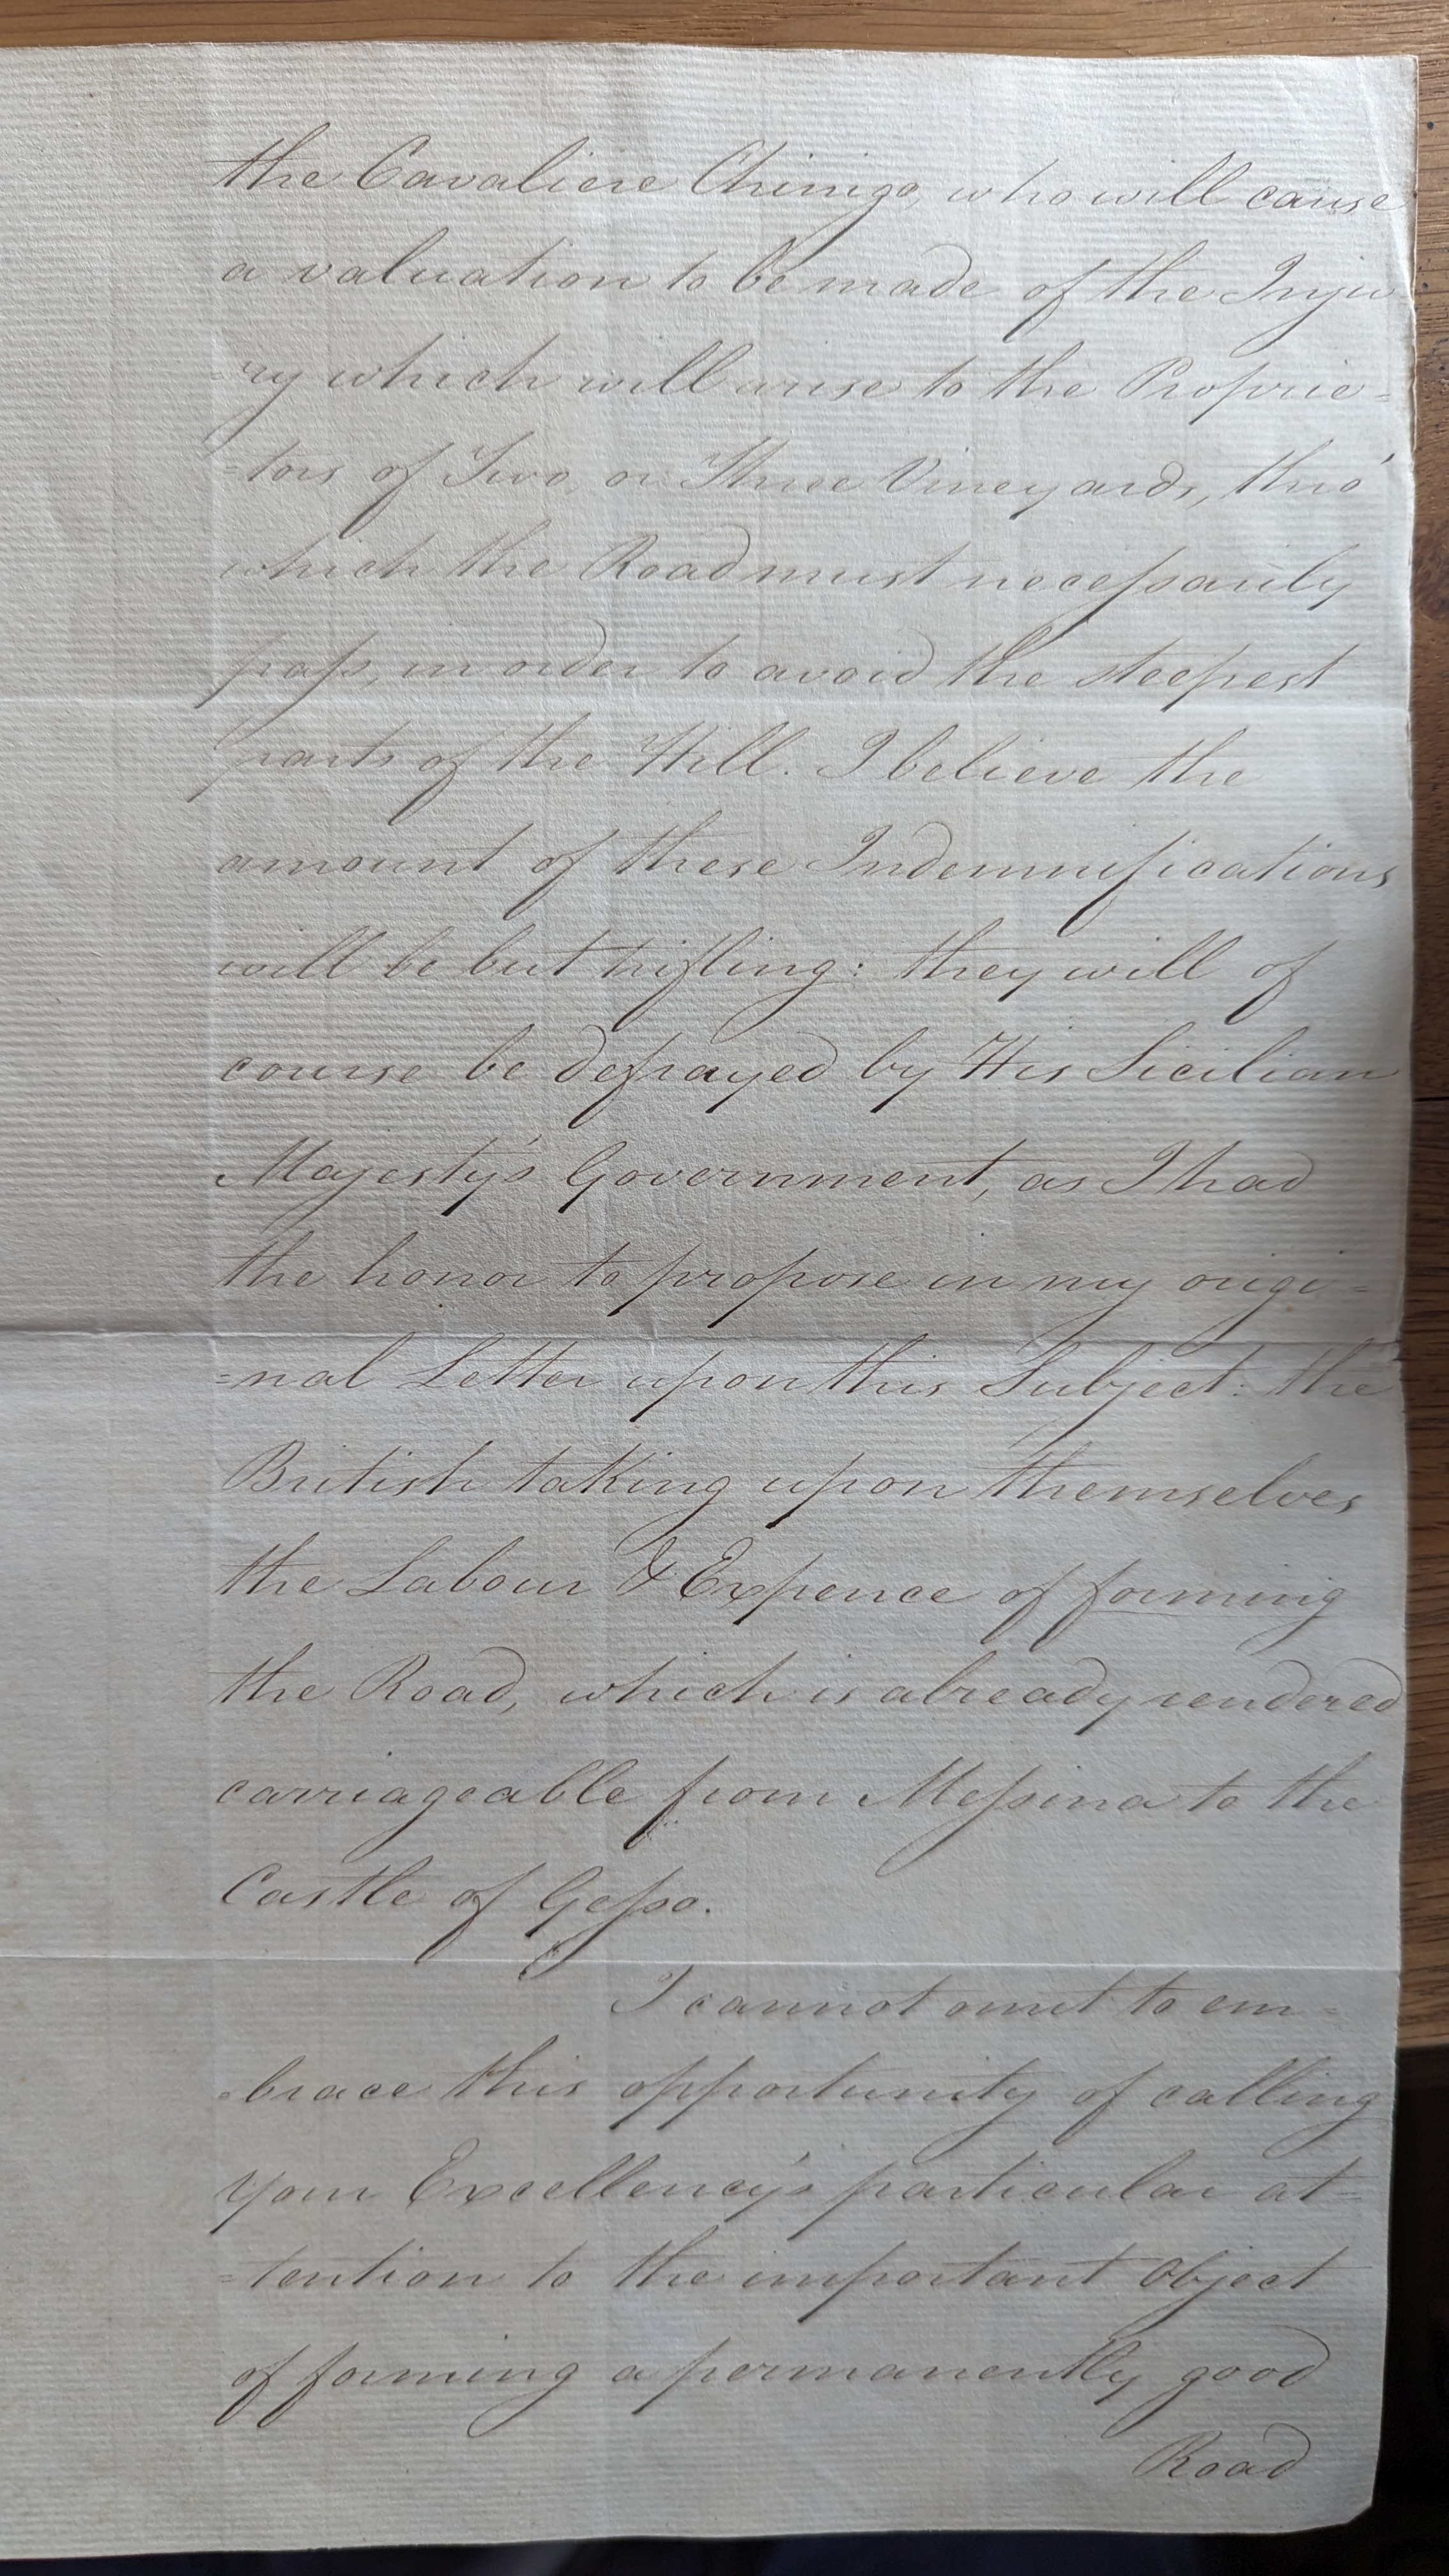 the Cavaliere Chinigo, who will cause
a valuation to be made of the Inju
-ry which will arise to the Proprie=
=tors of Two, or Three Vineyards, thro'
which the Road must necessarily
pass, in order to avoid the steepest
parts of the Hill. I believe the
amount of these Indemnifications
will be but trifling: they will of
course be defrayed by His Sicilian
Majesty's Government, as I had
the honor to propose in my origi=
=nal Letter upon this Subject: the
British taking upon themselves
the Labour & Expence of forming
the Road, which is already rendered
carriageable from Messina to the
Castle of Gesso.
I cannot omit to em=
=brace this opportunity of calling
Your Excellency's particular at=
=tention to the important Object
of forming a permanently good
Road